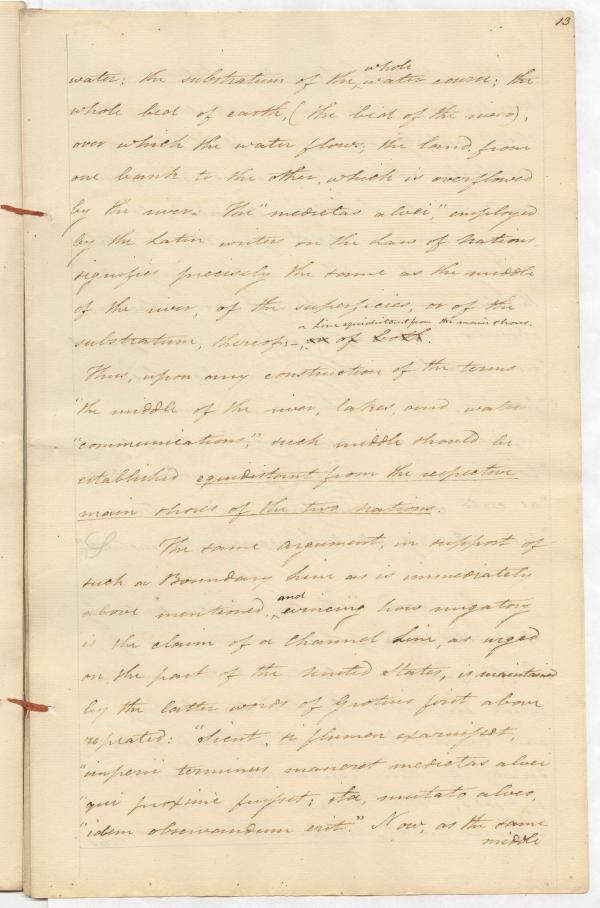 13
water: the substratum of the whole water course; the
whole bed of earth, (the bed of the river),
over which the water flows; the land, from
one bank to the other, which is overflowed
by the river. The "medietas alvei," employed
by the Latin writers on the Law of Nations
signifies precisely the same as the middle
of the river, of the superficies, or of the
a line equidistant from the main shores.
substratum, thereof;-, or of both.
Thus, upon any construction of the terms
"the middle of the river, lakes, and water
"communications," such middle should be
established equidistant from the respective
main shores of the two Nations.
The same argument, in support of
such a Boundary Line as is immediately
above mentioned, and evincing how nugatory
is the claim of a Channel Line, as urged
on the part of the United States, is maintained
by the latter words of Grotius first above
repeated: "Sicut, si flumen exaruisset,
"imperii terminus maneret medietas alvei
"qui proximè fuisset; ita, mutato alveo,
"idem observandum erit." Now, as the same
middle